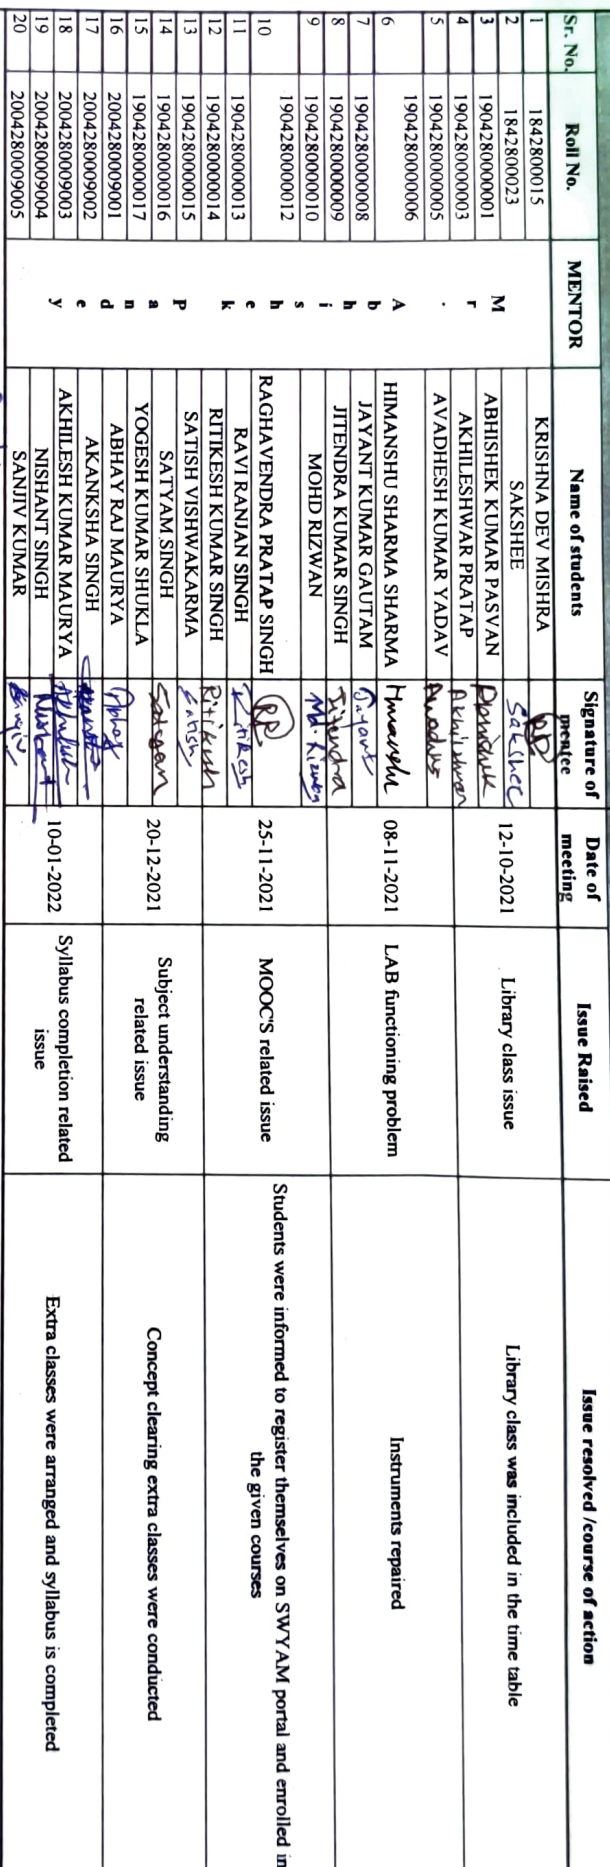 Sr. No. Roll No. MENTOR Name of students Signature of mentee Date of meeting Issue Raised Issue resolved /course of action
1 1842800015 KRISHNA DEV MISHRA
2 1842800023 SAKSHEE Sakshee
3 1904280000001 M ABHISHEK KUMAR PASVAN Abhishek 12-10-2021 Library class issue Library class was included in the time table
4 1904280000003 r AKHILESHWAR PRATAP Akhileshwar
5 1904280000005 . AVADHESH KUMAR YADAV Avadhesh
6 1904280000006 A HIMANSHU SHARMA SHARMA Himanshu 08-11-2021 LAB functioning problem Instruments repaired
7 1904280000008 b JAYANT KUMAR GAUTAM Jayant
8 1904280000009 h JITENDRA KUMAR SINGH Jitendra
9 1904280000010 i MOHD RIZWAN Md. Rizwan
10 1904280000012 s h RAGHAVENDRA PRATAP SINGH RP 25-11-2021 MOOC'S related issue Students were informed to register themselves on SWYAM portal and enrolled in the given courses
11 1904280000013 e RAVI RANJAN SINGH Ritikesh
12 1904280000014 k RITIKESH KUMAR SINGH Ritikesh
13 1904280000015 P SATISH VISHWAKARMA Satish
14 1904280000016 a SATYAM SINGH Satyam 20-12-2021 Subject understanding related issue Concept clearing extra classes were conducted
15 1904280000017 n YOGESH KUMAR SHUKLA
16 2004280009001 d ABHAY RAJ MAURYA Abhay
17 2004280009002 e AKANKSHA SINGH
18 2004280009003 y AKHILESH KUMAR MAURYA 10-01-2022 Syllabus completion related issue Extra classes were arranged and syllabus is completed
19 2004280009004 NISHANT SINGH Nishant
20 2004280009005 SANJIV KUMAR Sanjiv